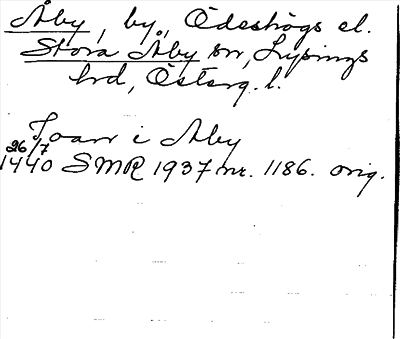 Åby, by, Ödeshögs el.
Stora Åby sn, Lysings
hrd, Österg. l.
Joan i Aby
26/7
1440 SMR 1937 nr. 1186. orig.